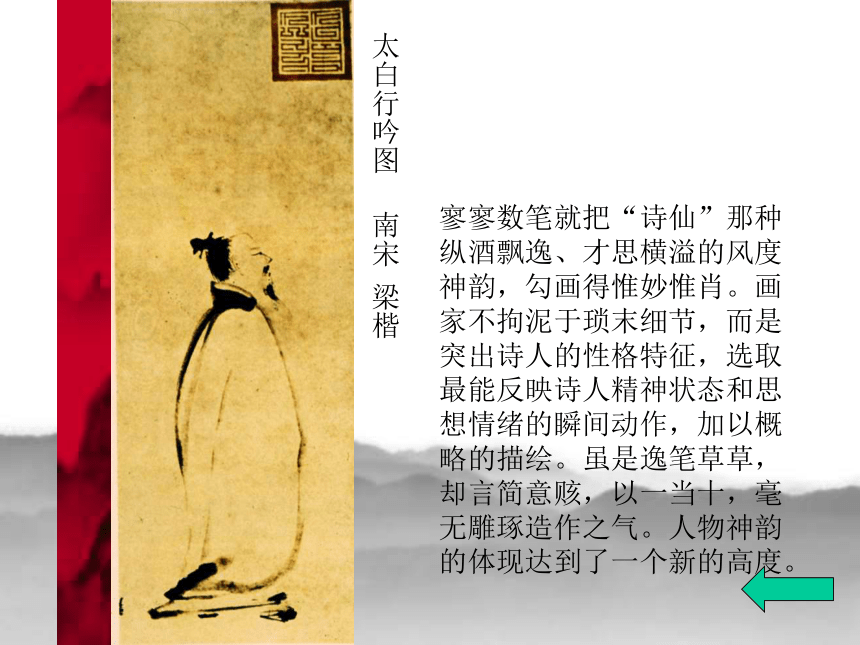 太白行吟图 南宋 梁楷
寥寥数笔就把“诗仙”那种
纵酒飘逸、才思横溢的风度
神韵，勾画得惟妙惟肖。画
家不拘泥于琐末细节，而是
突出诗人的性格特征，选取
最能反映诗人精神状态和思
想情绪的瞬间动作，加以概
略的描绘。虽是逸笔草草，
却言简意赅，以一当十，毫
无雕琢造作之气。人物神韵
的体现达到了一个新的高度。